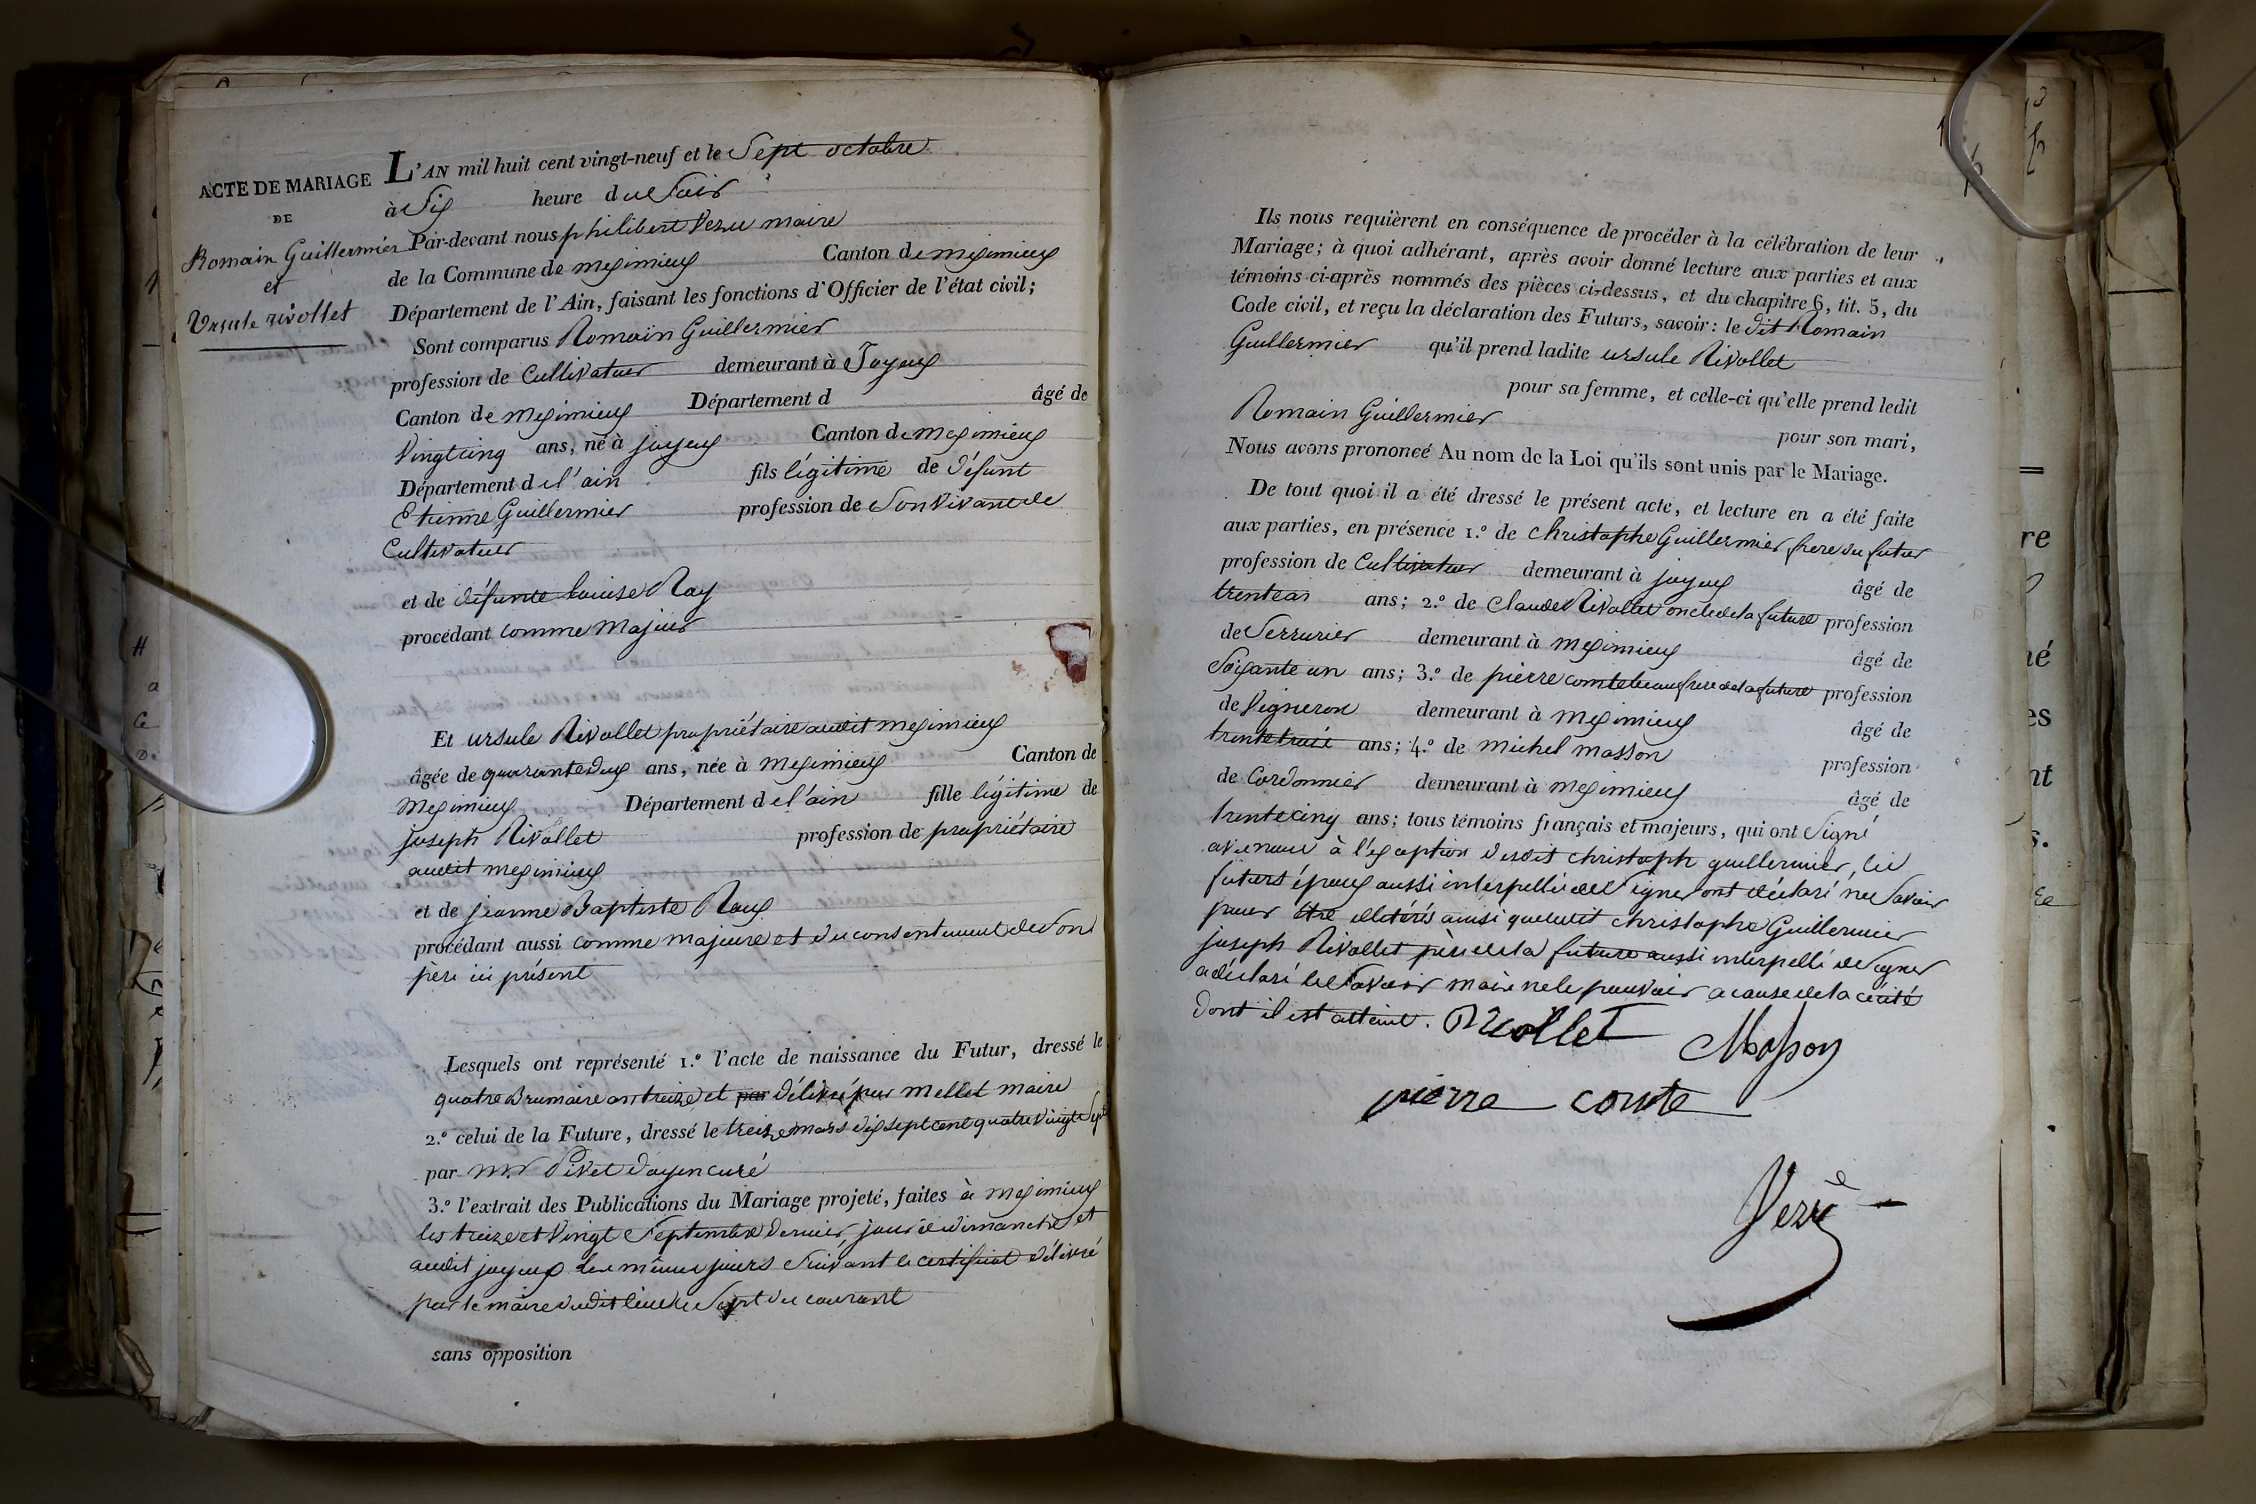 ACTE DE MARIAGE
DE
Romain Guillermier
et
Ursule rivollet
L'AN mil huit cent vingt-neuf et le Sept octobre
à Six heure du Soir
Par-devant nous philibert Vezu maire
de la Commune de meximieux Canton de meximieux
Département de l'Ain, faisant les fonctions d'Officier de l'état civil;
Sont comparus Romain Guillermier
profession de Cultivateur demeurant à Joyeux
Canton de meximieux Département d âgé de
Vingtcinq ans, né à joyeux Canton de meximieux
Département de l'ain fils légitime de défunt
Etienne Guillermier profession de Son Vivant de
Cultivateur
et de défunte Louise Ray
procédant comme Majeur
Et ursule Rivollet propriétaire audit meximieux
âgée de quarantedeux ans, née à meximieux Canton de
meximieux Département de l'ain fille légitime de
joseph Rivollet profession de propriétaire
audit meximieux
et de jeanne Baptiste Roux
procédant aussi comme majeure et du consentement de Son
père ici présent
Lesquels ont représenté 1.º l'acte de naissance du Futur, dressé le
quatre Brumaire an treize et par délivré par mellet maire
2.º celui de la Future, dressé le treize mars dix sept cent quatre Vingt Sept
par Mr Pivet doyen curé
3.º l'extrait des Publications du Mariage projeté, faites à meximieux
les treize et Vingt Septembre dernier, jour de dimanche et
audit joyeux les mêmes jours Suivant le certificat délivré
par le maire dudit lieu le Sept du courant
sans opposition
Ils nous requièrent en conséquence de procéder à la célébration de leur
Mariage; à quoi adhérant, après avoir donné lecture aux parties et aux
témoins ci-après nommés des pièces ci-dessus, et du chapitre 6, tit. 5, du
Code civil, et reçu la déclaration des Futurs, savoir: le dit Romain
Guillermier qu'il prend ladite ursule Rivollet
pour sa femme, et celle-ci qu'elle prend ledit
Romain Guillermier pour son mari,
Nous avons prononcé Au nom de la Loi qu'ils sont unis par le Mariage.
De tout quoi il a été dressé le présent acte, et lecture en a été faite
aux parties, en présence 1.º de christophe Guillermier frere du futur
profession de Cultivateur demeurant à joyeux âgé de
trente ans; 2.º de claude Rivollet oncle de la future profession
de Serrurier demeurant à meximieux âgé de
Soixante un ans; 3.º de pierre comte beaufrere de la future profession
de Vigneron demeurant à meximieux âgé de
trente trois ans; 4.º de michel masson profession
de Cordonnier demeurant à meximieux âgé de
trentecinq ans; tous témoins français et majeurs, qui ont Signé
avec nous à l'exception dudit christoph guillermier, les
futurs époux aussi interpellés de Signer ont déclaré ne Savoir
pour être illitérés ainsi que ledit christophe Guillermier
joseph Rivollet père de la future aussi interpellé de Signer
a déclaré le Savoir mais ne le pouvoir a cause de la cécité
dont il est atteint. Rivollet
Masson
pierre comte
Vezu